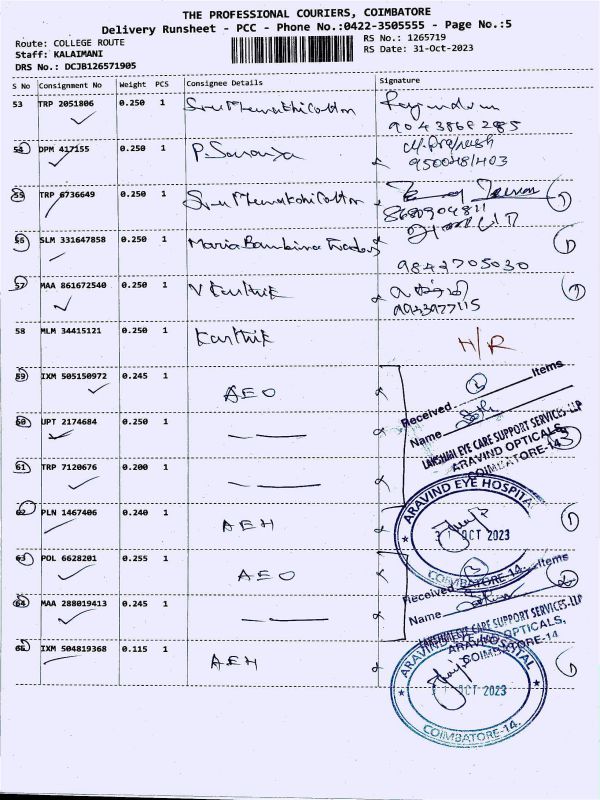 THE PROFESSIONAL COURIERS, COIMBATORE
Delivery Runsheet - PCC - Phone No.:0422-3505555 - Page No.:5
Route: COLLEGE ROUTE
RS No.: 1265719
Staff: KALAIMANI
RS Date: 31-Oct-2023
DRS No.: DCJB126571905
S No Consignment No Weight PCS Consignee Details Signature
53 TRP 2051806 0.250 1
9043868285
54 DPM 417155 0.250 1 P. Saranya
9500481403
55 TRP 6736649 0.250 1
8680904811
56 SLM 331647858 0.250 1 Maria Bambina Traders
9842705030
57 MAA 861672540 0.250 1 V Karthik
58 MLM 34415121 0.250 1 Karthik H/R
59 IXM 505150972 0.245 1 AEO
Received Items
60 UPT 2174684 0.250 1
Name
LAKSHMI EYE CARE SUPPORT SERVICES-LLP
ARAVIND OPTICALS,
COIMBATORE-14
61 TRP 7120676 0.200 1
ARAVIND EYE HOSPITAL
62 PLN 1467406 0.240 1 AEH
31 OCT 2023
COIMBATORE-14.
63 POL 6628201 0.255 1 AEO
Received Items
64 MAA 288019413 0.245 1
Name
LAKSHMI EYE CARE SUPPORT SERVICES-LLP
ARAVIND OPTICALS,
COIMBATORE-14
65 IXM 504819368 0.115 1 AEH
ARAVIND EYE HOSPITAL
OCT 2023
COIMBATORE-14.